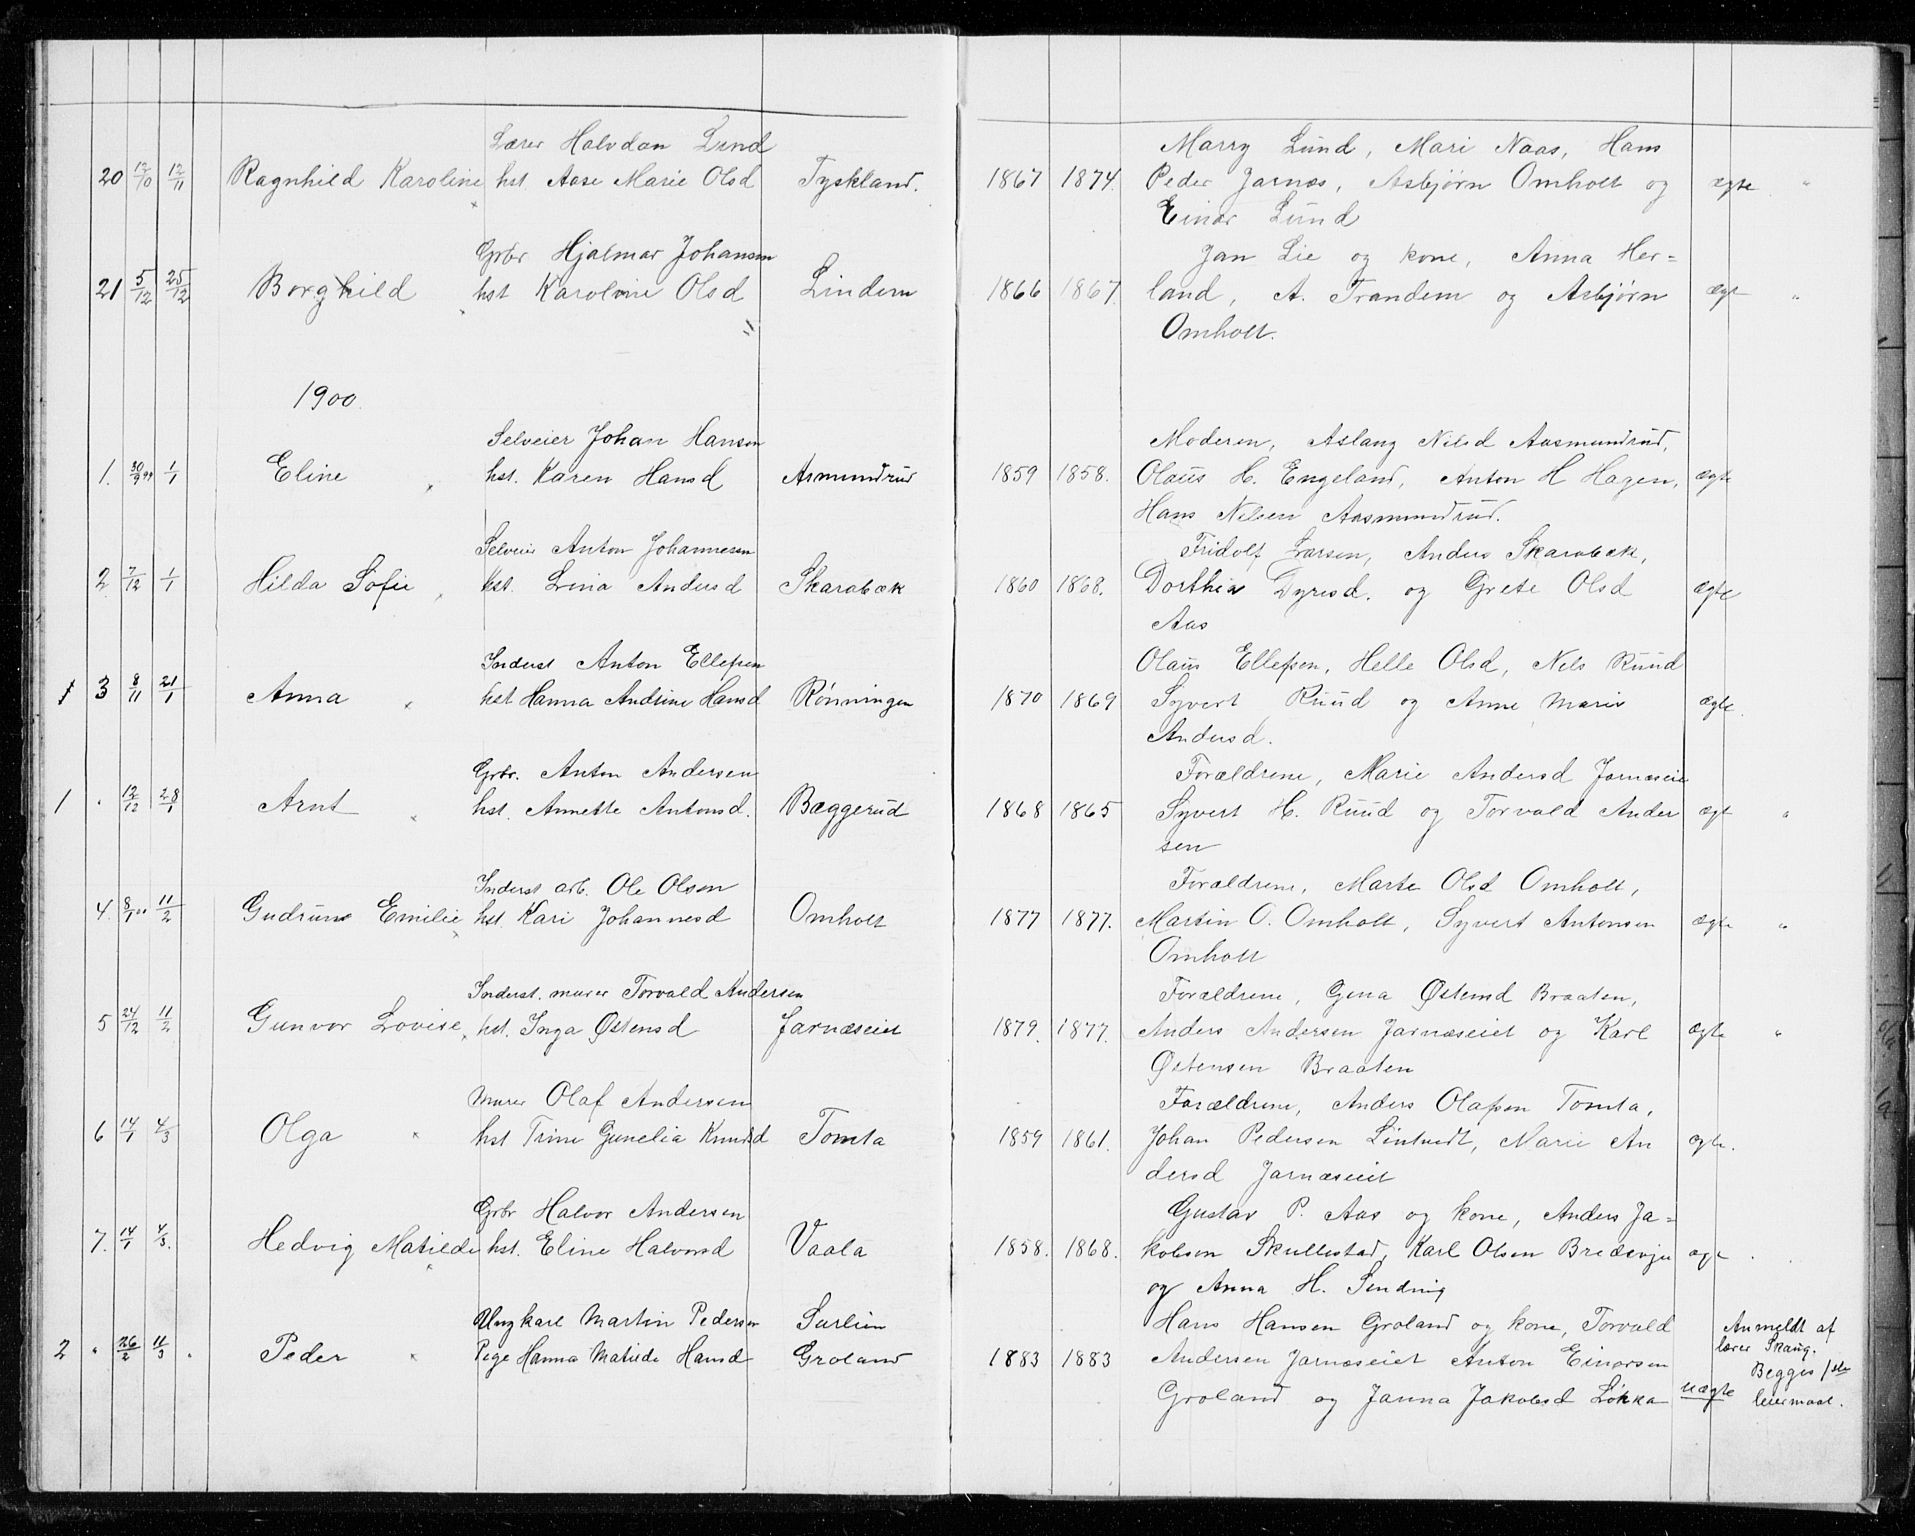 Lærer Halvdan Lund Marry Lund, Mari Naas, Hans
20 12/10 12/11 Ragnhild Karoline hst. Aase Marie Olsd Tyskland. 1867 1874. Peder Jarnæs, Asbjørn Omholt og ægte "
Einar Lund
Grbr Hjalmar Johansen Jan Lie og kone, Anna Her=
21 5/12 25/12 Borghild hst Karoline Olsd Lindem 1866 1867. land, A. Trandem og Asbjørn ægt "
Omholt.
1900.
Selveier Johan Hansen Moderen, Aslaug Nilsd Aasmundrud,
1. 30/9 99 1/1 Eline hst. Karen Hansd Asmundrud 1859 1858. Olaus H. Engeland, Anton H Hagen, ægte
Hans Nilsen Aasmundrud.
Selveier Anton Johannesen Fridolf Larsen, Anders Skarabæk,
2 7/12 1/1 Hilda Sofie hst. Lina Andersd Skarabæk 1860 1868. Dorthea Dyresd. og Grete Olsd ægte
Aas
Inderst Anton Ellefsen Olaus Ellefsen, Helle Olsd, Nels Ruud
1 3 8/11 21/1 Anna hst Hanna Andrine Hansd Rønningen 1870 1869 Syvert Ruud og Anne Marie ægte.
Andersd.
Grbr. Anton Andersen Forældrene, Marie Andersd Jarnæseie
1 " 12/12 28/1 Arnt hst. Annette Antonsd. Bæggerud 1868 1865 Syvert H. Ruud og Torvald Ander ægt "
sen
Inderst arb. Ole Olsen Forældrene, Marte Olsd Omholt,
4. 8/1 00 11/2 Gudrun Emilie hst. Kari Johannesd Omholt 1877 1877. Martin O. Omholt, Syvert Antonsen ægte "
Omholt
Inderst. murer Torvald Andersen Forældrene, Gina Østensd Braaten,
5 24/12 11/2 Gunvor Lovise, hst. Inga Østensd Jarnæseiet 1879. 1877. Anders Andersen Jarnæseiet og Karl ægte "
Østensen Braaten
Murer Olaf Andersen Forældrene, Anders Olafsen Tomta,
6 14/1 4/3 Olga hst Trine Gunelia Knudsd Tomta 1859 1861. Johan Pedersen Lintvedt, Marie An ægte.
dersd Jarnæseiet
Grbr Halvor Andersen Gustav P. Aas og kone, Anders Ja=
7. 14/1 4/3. Hedvig Matilde hst. Eline Halvorsd Vaala 1858. 1868. kobsen Skullestad, Karl Olsen Bredevje ægt
og Anna H. Sending
Ungkarl Martin Pedersen Surlien Hans Hansen Groland og kone, Torvald Anmeldt af
2 " 26/2 11/3 Peder Pige Hanna Matilde Hansd Groland 1883 1883 Andersen Jarnæseiet Anton Einarsen lærer Skaug.
Begges 1ste
Groland og Janna Jakobsd Løkka uægte leiermaal.